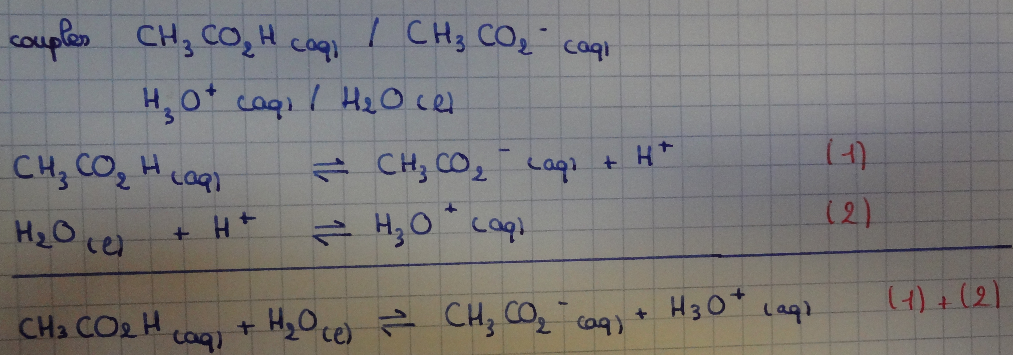 couples CH₃CO₂H (aq) / CH₃CO₂⁻ (aq)
H₃O⁺ (aq) / H₂O (l)
CH₃CO₂H (aq) ⇌ CH₃CO₂⁻ (aq) + H⁺ (1)
H₂O (l) + H⁺ ⇌ H₃O⁺ (aq) (2)
CH₃CO₂H (aq) + H₂O (l) ⇌ CH₃CO₂⁻ (aq) + H₃O⁺ (aq) (1) + (2)